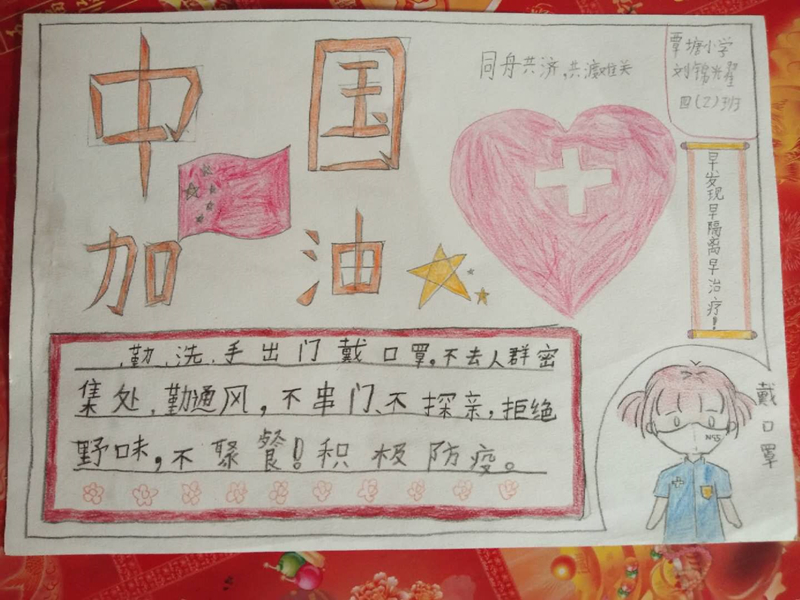 中国
加油
同舟共济,共渡难关
覃塘小学
刘锦光耀
四(2)班
早发现早隔离早治疗!
勤洗手出门戴口罩。不去人群密
集处、勤通风,不串门、不探亲,拒绝
野味,不聚餐!积极防疫。
戴口罩
N95